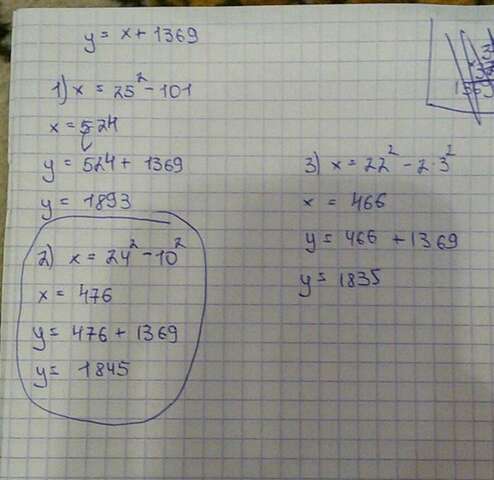 y = x + 1369
1) x = 25² - 101
x = 524
y = 524 + 1369
y = 1893
2) x = 24² - 10²
x = 476
y = 476 + 1369
y = 1845
3) x = 22² - 2 · 3²
x = 466
y = 466 + 1369
y = 1835